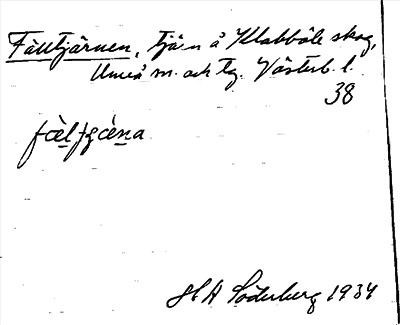 Fälltjärnen, tjärn å Klabböle skog,
Umeå sn. och tg. Västerb. l.
38
fæ̀lʃæ̀ṇa
H A Söderberg 1934